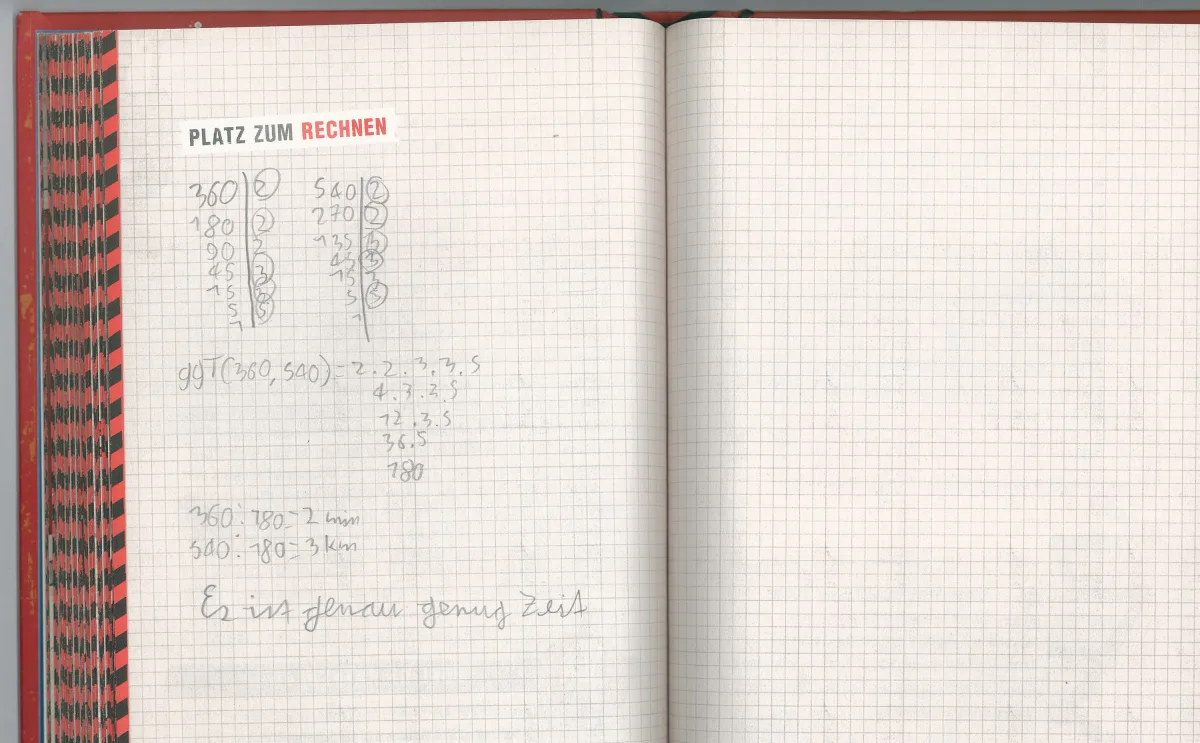 PLATZ ZUM RECHNEN
360 | 2
180 | 2
90 | 2
45 | 3
15 | 3
5 | 5
1
540 | 2
270 | 2
135 | 3
45 | 3
15 | 3
5 | 5
1
ggT(360, 540) = 2 . 2 . 3 . 3 . 5
4 . 3 . 3 . 5
12 . 3 . 5
36 . 5
180
360 : 180 = 2 min
540 : 180 = 3 km
Es ist genau genug Zeit